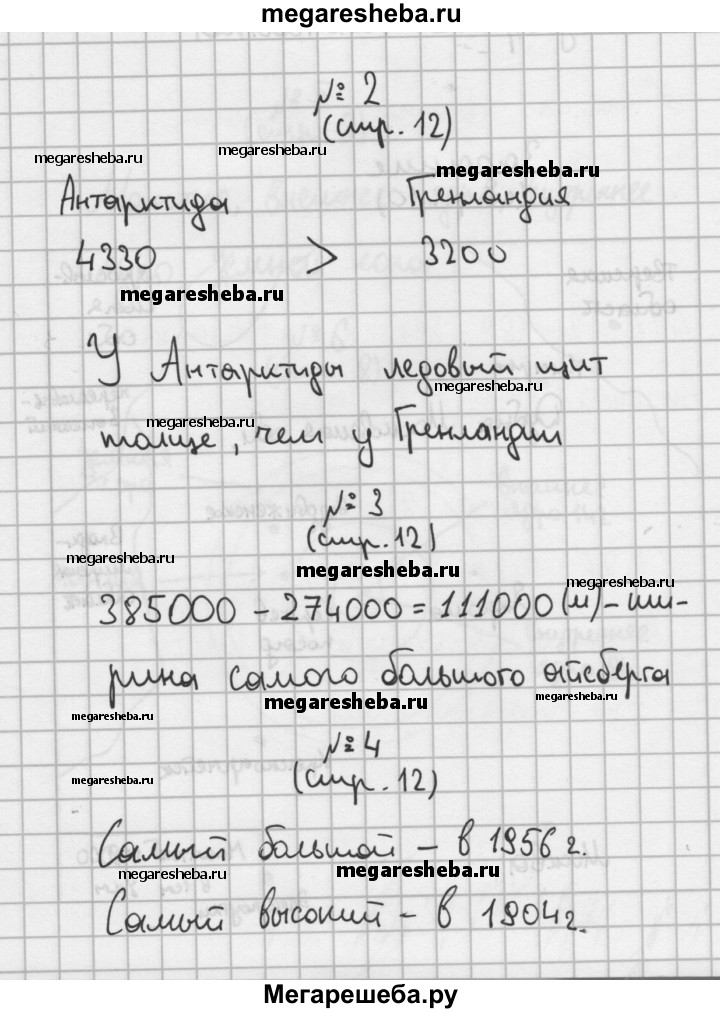 megaresheba.ru
№ 2
(стр. 12)
megaresheba.ru
megaresheba.ru
megaresheba.ru
Антарктида Гренландия
4330 > 3200
megaresheba.ru
У Антарктиды ледовый щит
megaresheba.ru
megaresheba.ru
толще, чем у Гренландии
№ 3
(стр. 12)
megaresheba.ru
megaresheba.ru
385000 - 274000 = 111000 (м) - ши-
рина самого большого айсберга
megaresheba.ru
megaresheba.ru
megaresheba.ru
№ 4
(стр. 12)
megaresheba.ru
Самый большой - в 1956 г.
megaresheba.ru
megaresheba.ru
Самый высокий - в 1904 г.
Мегарешеба.ру